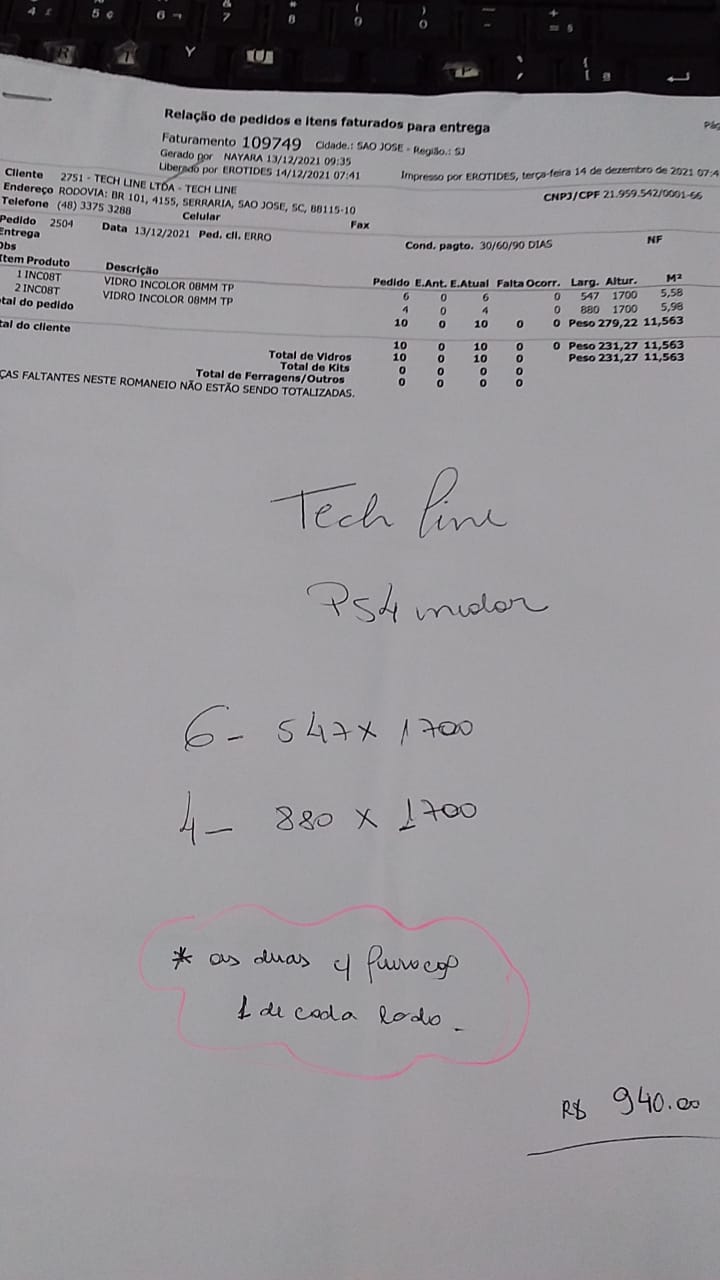 Relação de pedidos e itens faturados para entrega
Faturamento 109749 Cidade.: SAO JOSE - Região.: SJ
Gerado por NAYARA 13/12/2021 09:35
Liberado por EROTIDES 14/12/2021 07:41 Impresso por EROTIDES, terça-feira 14 de dezembro de 2021 07:4
Cliente 2751 - TECH LINE LTDA - TECH LINE CNPJ/CPF 21.959.542/0001-66
Endereço RODOVIA: BR 101, 4155, SERRARIA, SAO JOSE, SC, 88115-10
Telefone (48) 3375 3288 Celular Fax
Pedido 2504 Data 13/12/2021 Ped. cli. ERRO Cond. pagto. 30/60/90 DIAS NF
Entrega
Obs
Item Produto Descrição Pedido E.Ant. E.Atual Falta Ocorr. Larg. Altur. M²
1 INC08T VIDRO INCOLOR 08MM TP 6 0 6 0 547 1700 5,58
2 INC08T VIDRO INCOLOR 08MM TP 4 0 4 0 880 1700 5,98
tal do pedido 10 0 10 0 0 Peso 279,22 11,563
tal do cliente 10 0 10 0 0 Peso 231,27 11,563
Total de Vidros 10 0 10 0 Peso 231,27 11,563
Total de Kits 0 0 0 0
Total de Ferragens/Outros 0 0 0 0
ÇAS FALTANTES NESTE ROMANEIO NÃO ESTÃO SENDO TOTALIZADAS.
Tech line
6- 547x 1700
4- 880 x 1700
* as duas c/
1 de cada lado.
R$ 940.00
4
5
6
7
8
9
0
R
T
Y
U
P